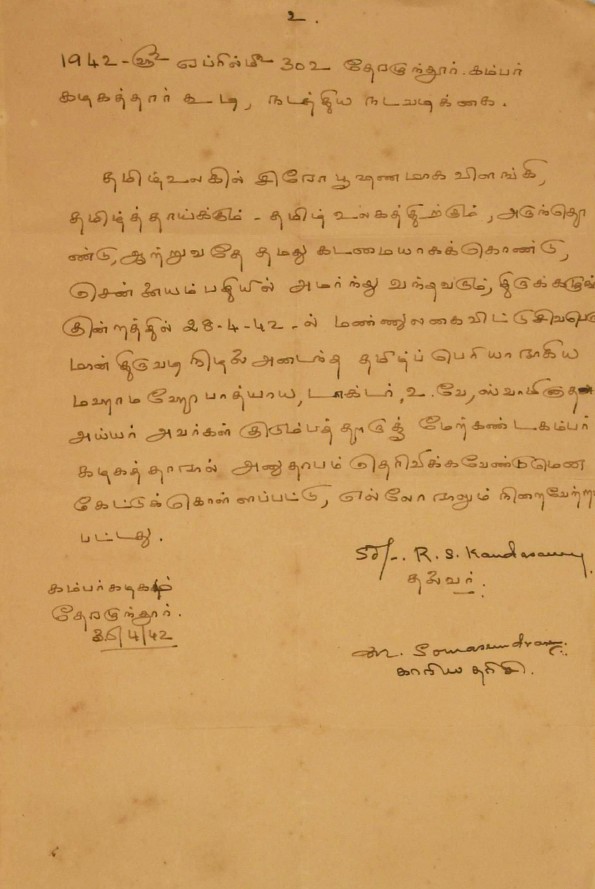 உ.
1942-௵ ஏப்ரல்மீ 30உ தேரழுந்தூர். கம்பர்
கழகத்தார் கூடி, நடத்திய நடவடிக்கை.
தமிழ்உலகில் சிரோபூஷணமாக விளங்கி,
தமிழ்த்தாய்க்கும் - தமிழ் உலகத்திற்கும், அருந்தொ
ண்டு, ஆற்றுவதே தமது கடமையாகக்கொண்டு,
சென்னையம்பதியில் அமர்ந்து வந்தவரும், திருக்கழுக்
குன்றத்தில் 28-4-42-ல் மண்ணுலகைவிட்டு சிவபெரு
மான் திருவடி நிழல் அடைந்த தமிழ்ப் பெரியாராகிய
மஹாமஹோபாத்யாய, டாக்டர், உ.வே, ஸ்வாமிநாத
அய்யர் அவர்கள் குடும்பத்தாருக்கு மேற்கண்டகம்பர்
கழகத்தாரால் அனுதாபம் தெரிவிக்கவேண்டுமென
கேட்டுக்கொள்ளப்பட்டு, எல்லோராலும் நிறைவேற்றப்
பட்டது.
Sd/-. R. S. Kandasamy
தலைவர்.
கம்பர்கழகம்
தேரழுந்தூர்.
30/4/42
M. Somasundram
காரியதரிசி.